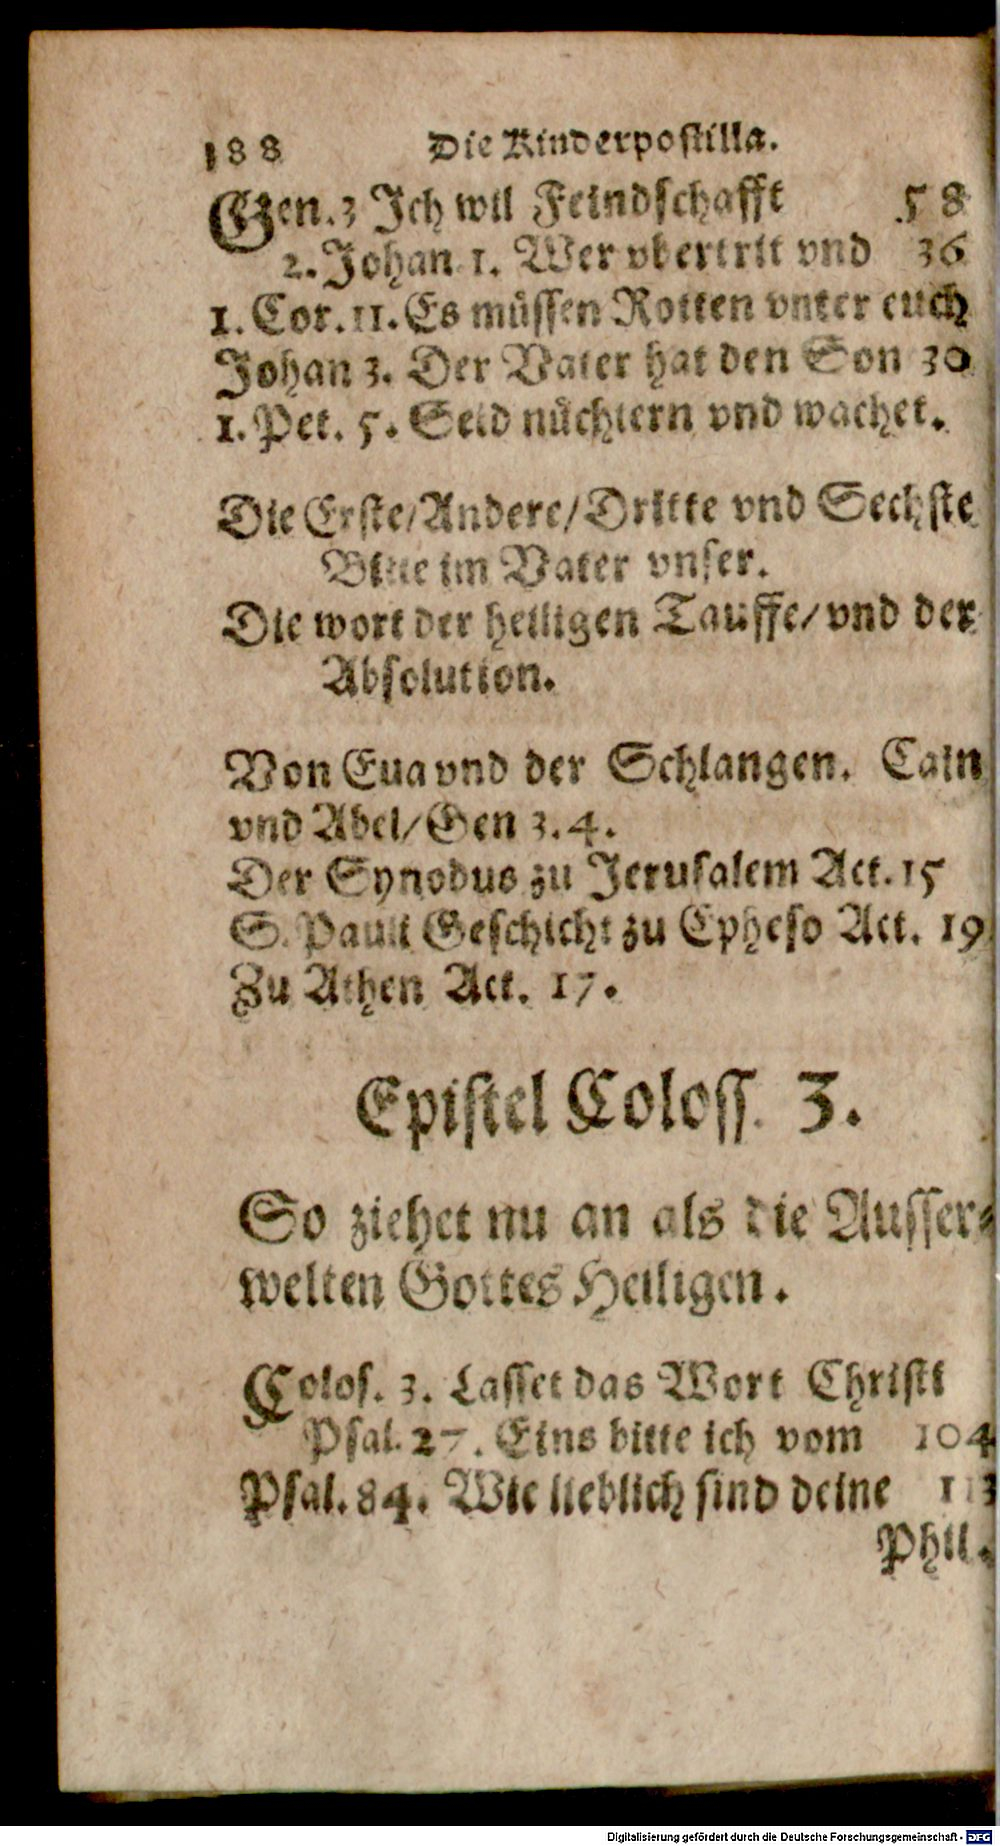 188 Die Kinderpostilla.
Gen. 3 Ich wil Feindschafft 58
2. Johan 1. Wer vbertrit vnd 36
1. Cor. 11. Es müssen Rotten vnter euch
Johan 3. Der Vater hat den Son 30
1. Pet. 5. Seid nüchtern vnd wachet.
Die Erste/Andere/Dritte vnd Sechste
Bitte im Vater vnser.
Die wort der heiligen Tauffe/vnd der
Absolution.
Von Eua vnd der Schlangen. Cain
vnd Abel/Gen 3. 4.
Der Synodus zu Jerusalem Act. 15
S. Pauli Geschicht zu Epheso Act. 19
Zu Athen Act. 17.
Epistel Coloss. 3.
So ziehet nu an als die Ausser-
welten Gottes Heiligen.
Colos. 3. Lasset das Wort Christi
Psal. 27. Eins bitte ich vom 104
Psal. 84. Wie lieblich sind deine 113
Phil.
Digitalisierung gefördert durch die Deutsche Forschungsgemeinschaft - DFG